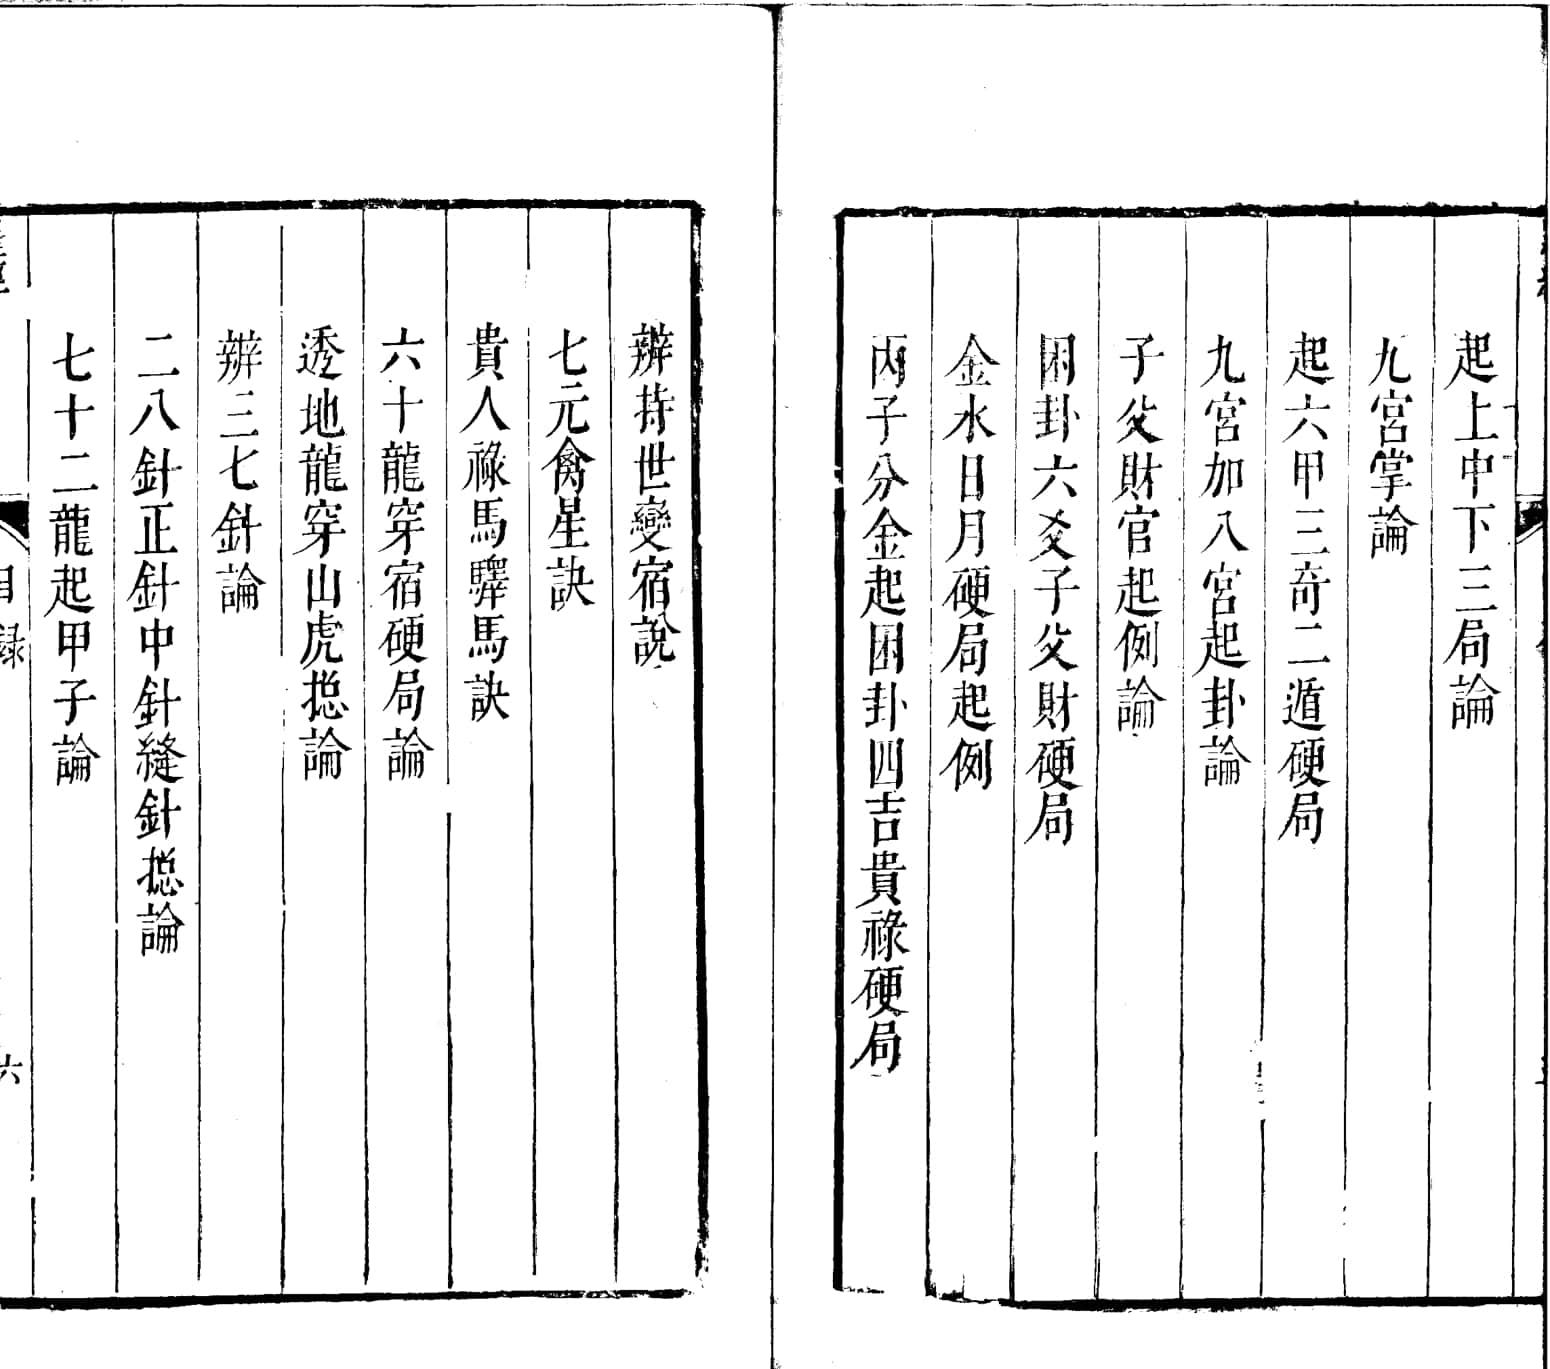 起上中下三局論
九宮掌論
起六甲三奇二遁硬局
九宮加八宮起卦論
子父財官起例論
困卦六爻子父財硬局
金水日月硬局起例
丙子分金起困卦四吉貴祿硬局
辨持世變宿說
七元禽星訣
貴人祿馬驛馬訣
六十龍穿宿硬局論
透地龍穿山虎揔論
辨三七針論
二八針正針中針縫針揔論
七十二龍起甲子論
目録
六